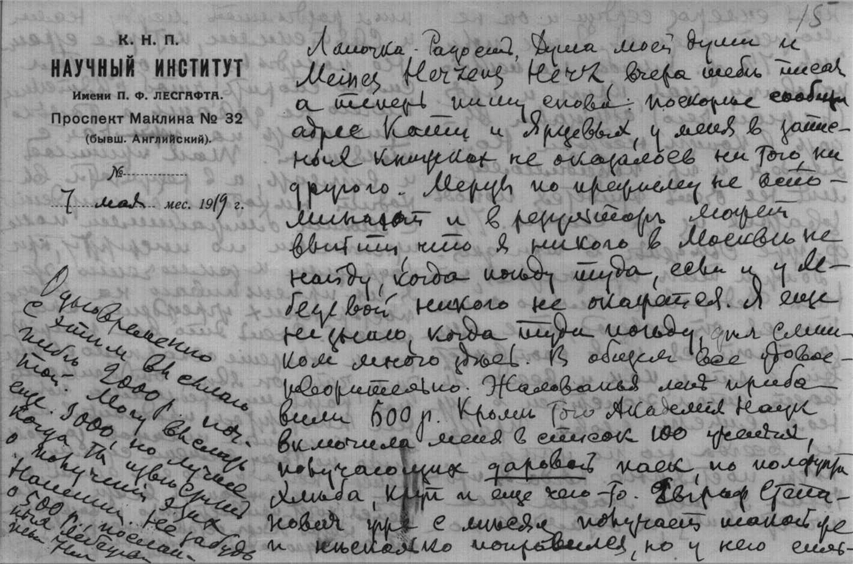 15
К. Н. П.
НАУЧНЫЙ ИНСТИТУТ
Имени П. Ф. ЛЕСГАФТА.
Проспект Маклина № 32
(бывш. Английский).
№
7 мая мес. 1919 г.
Лапочка. Радость, Душа моей души и
Meines Herzens Herz, вчера тебѣ писал
а теперь пишу снова: поскорѣе сообщи
адрес Кати и Ярцевых, у меня в запис-
ных книжках не оказалось ни того, ни
другого. Мерцы по прежнему не
и в может
выйти, что я никого в Москвѣ не
найду, когда поѣду туда, если и у Ле-
бедевой никого не окажется. Я еще
не знаю, когда туда поѣду, дѣл слиш-
ком много здѣсь. В общем все удовле-
творительно. Жалованья мнѣ приба-
вили 600 р. Кромѣ того Академия Наук
включила меня в список 100 ученых,
получающих даровой паек, по полфунта
хлѣба, круп и еще чего-то. Евграф Степа-
нович уже с мѣсяц получает такой же
и нѣсколько поправился, но у него
Одновременно
с этим высылаю
тебѣ 2000 р. поч-
той. Могу выслать
еще 3000, но лучше
когда ты извѣстишь
о получении этих
Напиши. Не забудь
о 500 р.